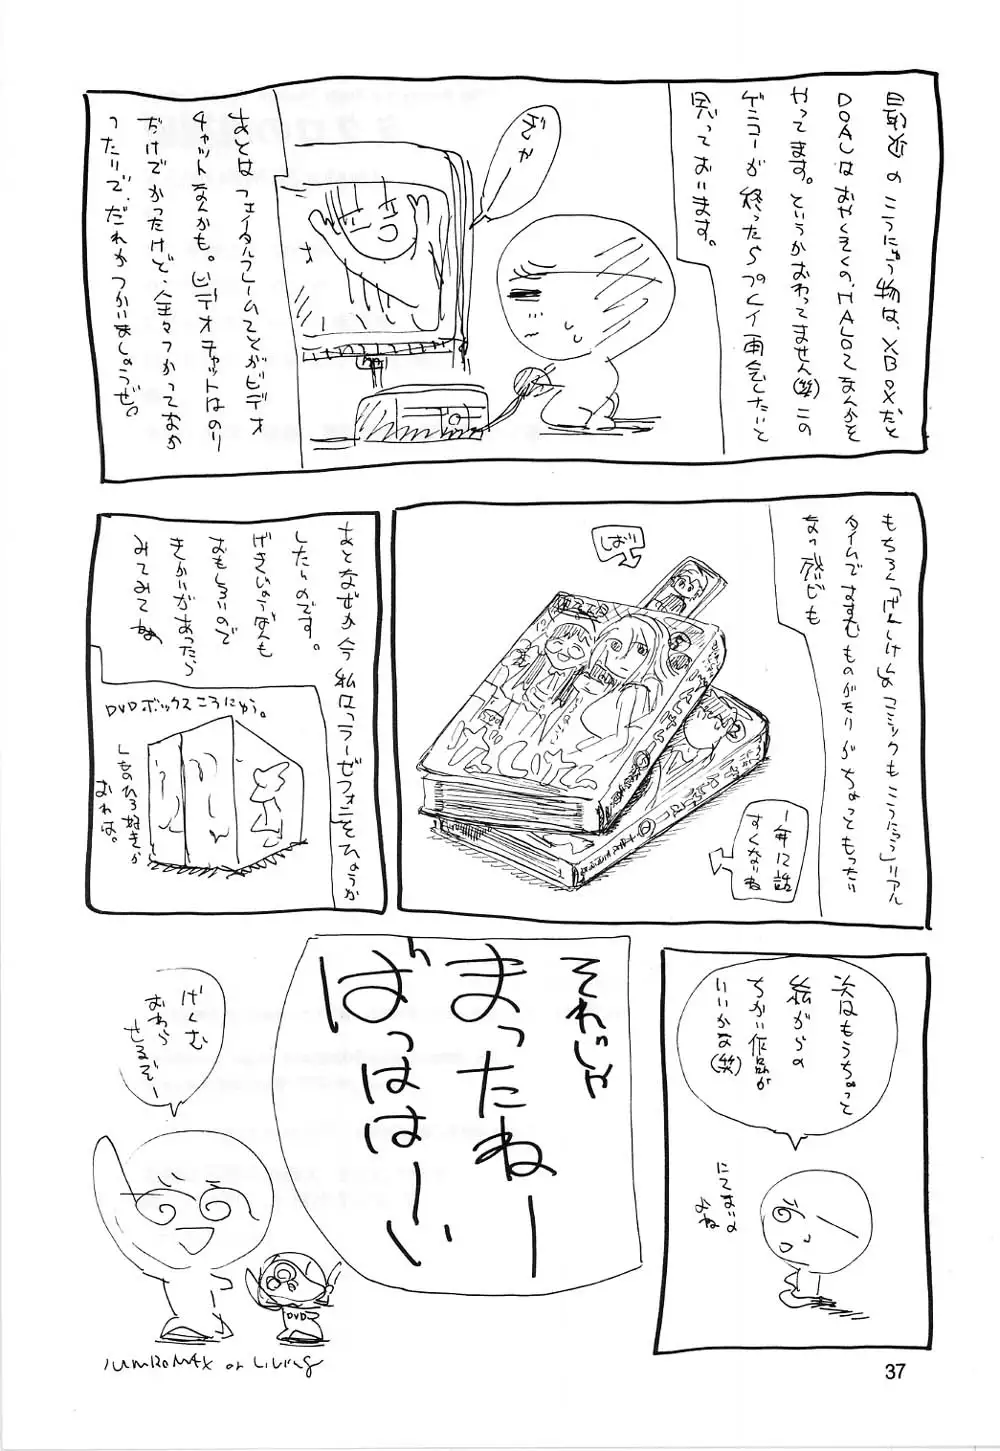 最近のこうにゅう物は、XBOXだと
DOAUはおやくそくの、HALOてなんかを
やってます。というかおわってません(笑)この
ゲンコーが終ったらプレイ再会したいと
思っております。
ぜんか
あとはフェイタルフレームてとかビデオ
チャットなんかも。ビデオチャットはのり
だけでかったけど、全々つかっておか
ったりで、だれかつかいましょうぜ。
もちろん「げんしけん」のコミックもこうにゅう」リアル
タイムですすむものがたりがちょっともったい
しおり
1年12話
すくないね
あとなぜか今私はラーゼフォンをひょうか
したいのです。
げきじょうばんも
おもしろいので
きかいがあったら
みてみてね
DVDボックスこうにゅう。
しものひろ好きか
おれは。
次はもうちょっと
絵がらの
ちかい作品が
いいかな(笑)
にてないの
よね
それじゃ
まったねー
ばっははーい
げんこう
おわら
せるぞー
DVD
37